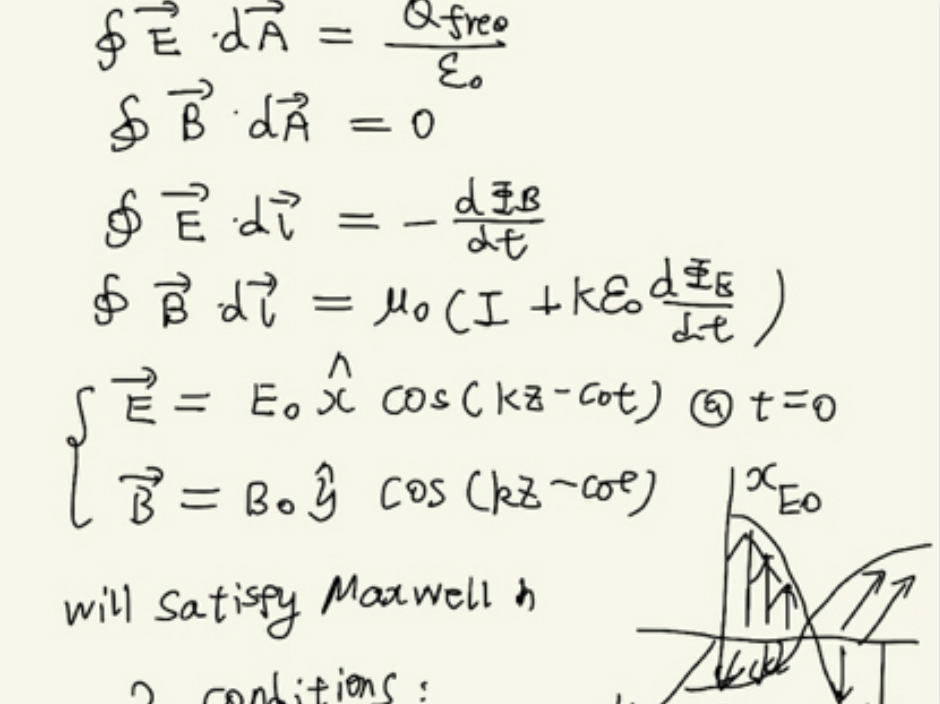 ∮ E⃗ · dA⃗ = Qfree / ε₀
∮ B⃗ · dA⃗ = 0
∮ E⃗ · dl⃗ = - dΦB / dt
∮ B⃗ · dl⃗ = μ₀ ( I + kε₀ dΦE / dt )
E⃗ = E₀ x̂ cos(kz-ωt) @ t=0
B⃗ = B₀ ŷ cos(kz-ωt)
x E₀
will satisfy Maxwell
2 conditions: